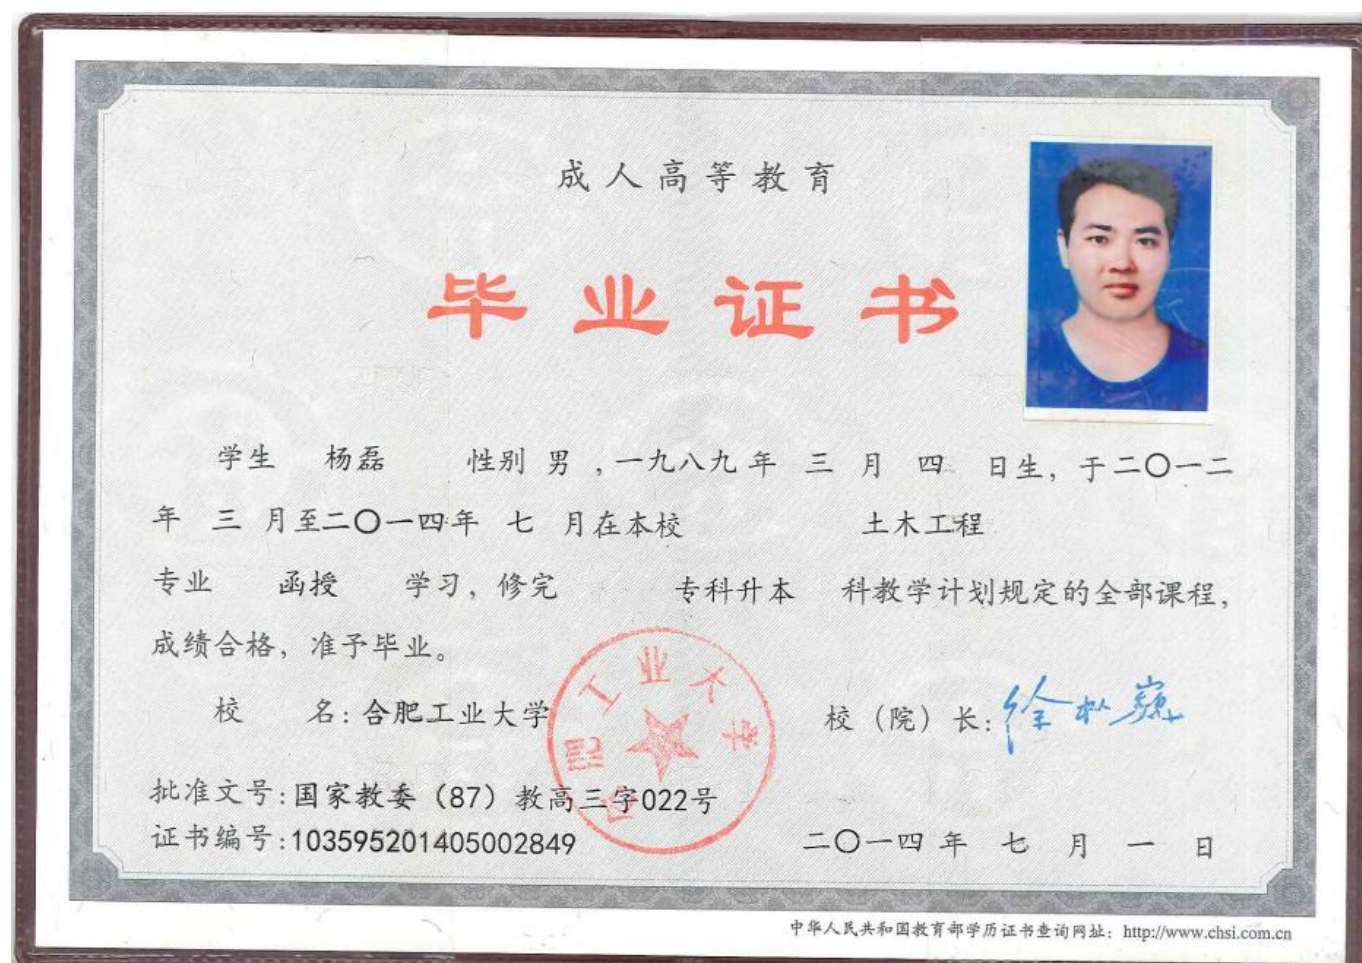 成人高等教育
毕业证书
学生 杨磊 性别 男 ,一九八九年 三 月 四 日生, 于二〇一二
年 三 月至二〇一四年 七 月在本校 土木工程
专业 函授 学习, 修完 专科升本 科教学计划规定的全部课程,
成绩合格, 准予毕业。
校 名: 合肥工业大学
校（院）长: 徐枞巍
合肥工业大学
批准文号: 国家教委（87）教高三字022号
证书编号: 103595201405002849
二〇一四 年 七 月 一 日
中华人民共和国教育部学历证书查询网址: http://www.chsi.com.cn